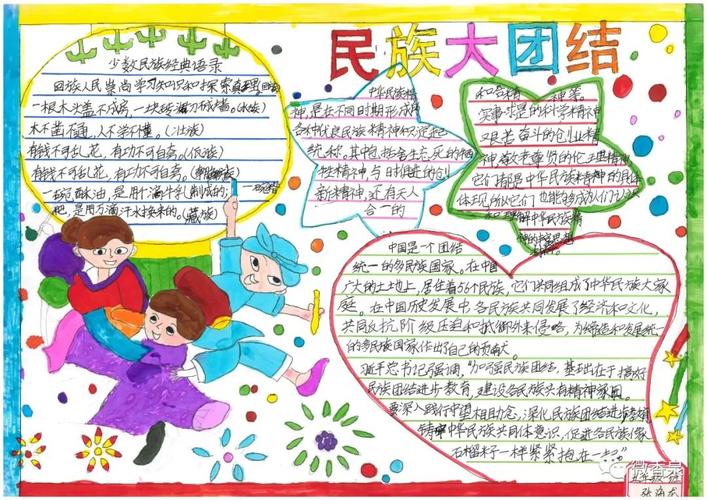 民族大团结
少数民族经典语录
回族人民崇尚学习知识和探索真理
一根木头盖不成房,一块砖
木不凿不通,人不学不懂。
有钱不可乱花,有功不可自夸。
有钱不可乱花,有功不可自夸。
一碗酥油,是用千滴牛乳制成的;一碗糌
粑,是用万滴汗水换来的。(藏族)
中华民族精
神,是在不同时期形成的
统称。其中包括
性精神,与时俱进的创
新精神,还有天人
合一的
和合精神等。
实事求是的科学精神
艰苦奋斗的创业精
神,敬老尊贤的伦理精神,
它们都是中华民族精神的具体
体现,所以它们也能够成为人们认
中国是一个团结
统一的多民族国家。在中国
广大的土地上,居住着56个民族,它们共同组成了中华民族大家
庭。在中国历史发展中,各民族共同发展了经济和文化,
共同反抗阶级压迫和抵御外来侵略,为缔造和发展统一
的多民族国家作出了自己的贡献。
习近平总书记强调,“加强民族团结,基础在于搞好
民族团结进步教育,建设各民族共有精神家园。
要深入践行守望相助理念,深化民族团结进步教育,
铸牢中华民族共同体意识,促进各民族像
石榴籽一样紧紧抱在一起。”
微香泉